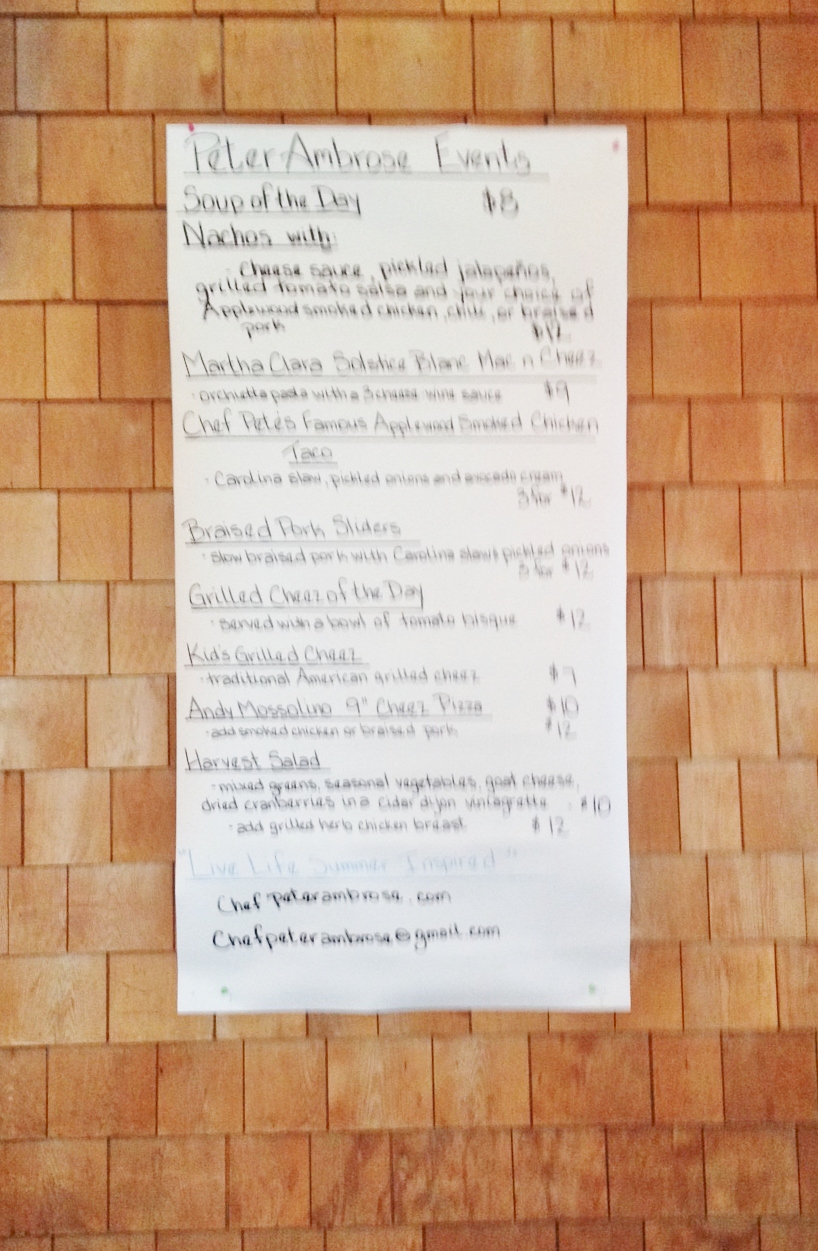 Peter Ambrose Events
Soup of the Day $8
Nachos with:
· Cheese sauce, pickled jalapeños,
grilled tomato salsa and your choice of
Applewood smoked chicken, chili, or braised
pork $12
Martha Clara Solstice Blanc Mac n Cheez
· orchietta pasta with a 3 cheese wine sauce $9
Chef Pete's Famous Applewood Smoked Chicken
Taco
· Carolina slaw, pickled onions and avocado cream
3 for $12
Braised Pork Sliders
· slow braised pork with Carolina slaw & pickled onions
3 for $12
Grilled Cheez of the Day
· served with a bowl of tomato bisque $12
Kid's Grilled Cheez
· traditional American grilled cheez $7
Andy Mossolino 9" Cheez Pizza $10
· add smoked chicken or braised pork $12
Harvest Salad
· mixed greens, seasonal vegetables, goat cheese,
dried cranberries in a cider dijon vinaigrette $10
· add grilled herb chicken breast $12
"Live Life Summer Inspired"
Chefpeterambrose.com
Chefpeterambrose@gmail.com